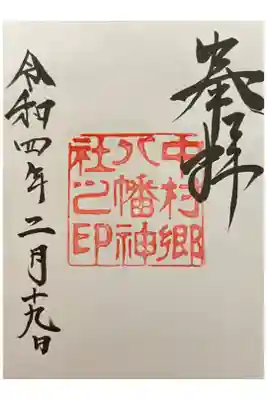 奉拝
中村郷
八幡神
社之印
令和四年二月十九日